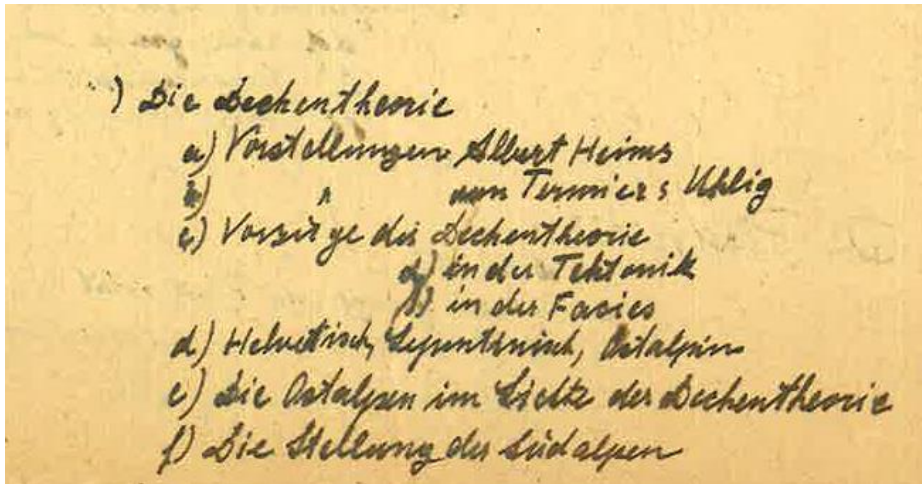 ) Die Deckentheorie
a) Vorstellungen Albert Heims
b) " von Termier s Uhlig
c) Vorzüge der Deckentheorie
α) in der Tektonik
β) in der Facies
d) Helvetisch, Lepontinisch, Ostalpin
e) Die Ostalpen im Lichte der Deckentheorie
f) Die Stellung der Südalpen